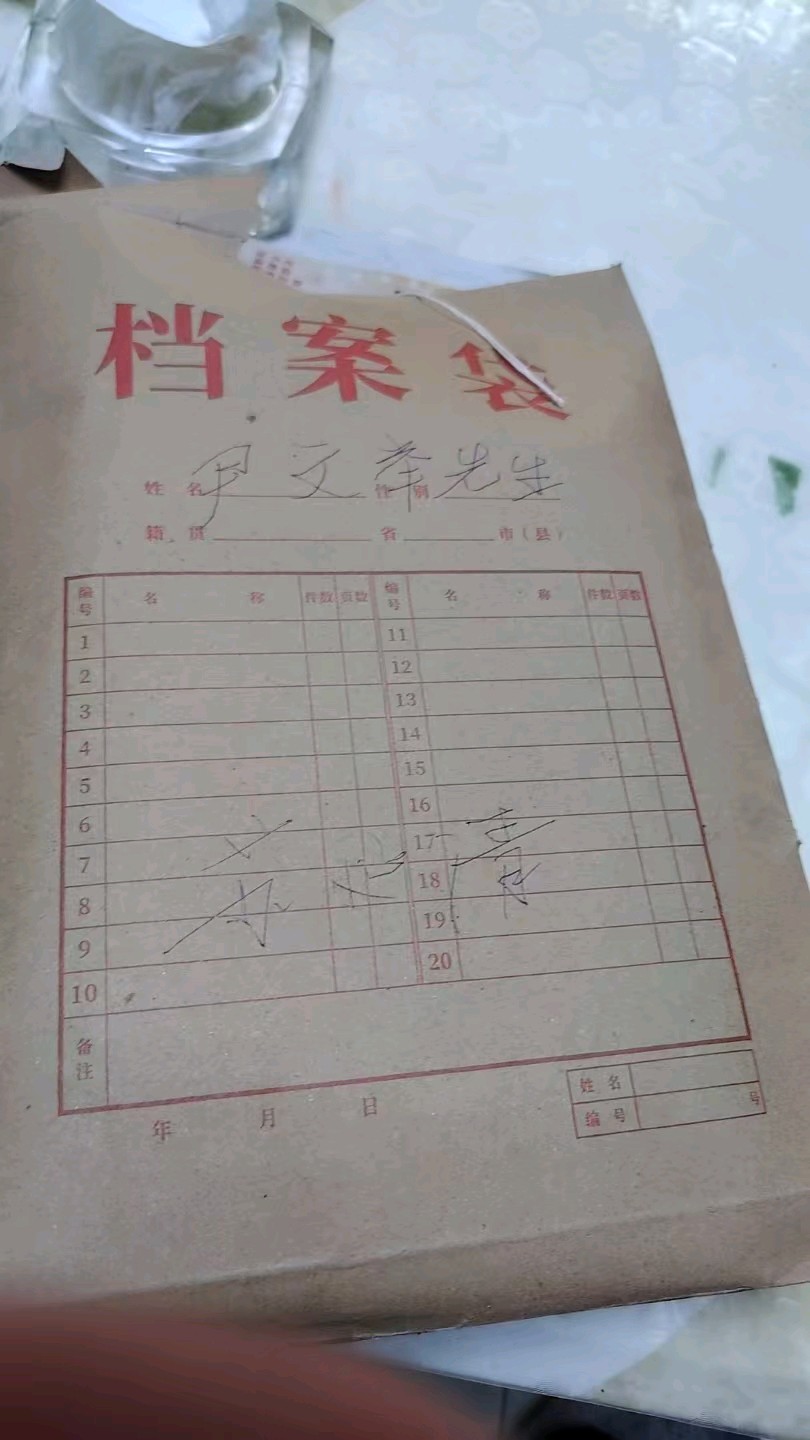 档案袋
尹文举先生
姓名 性别
籍贯 省 市(县)
编号 名称 件数 页数 编号 名称 件数 页数
1 11
2 12
3 13
4 14
5 15
6 16
7 17
8 18
9 19
10 20
备注
年 月 日
姓名
编号 号